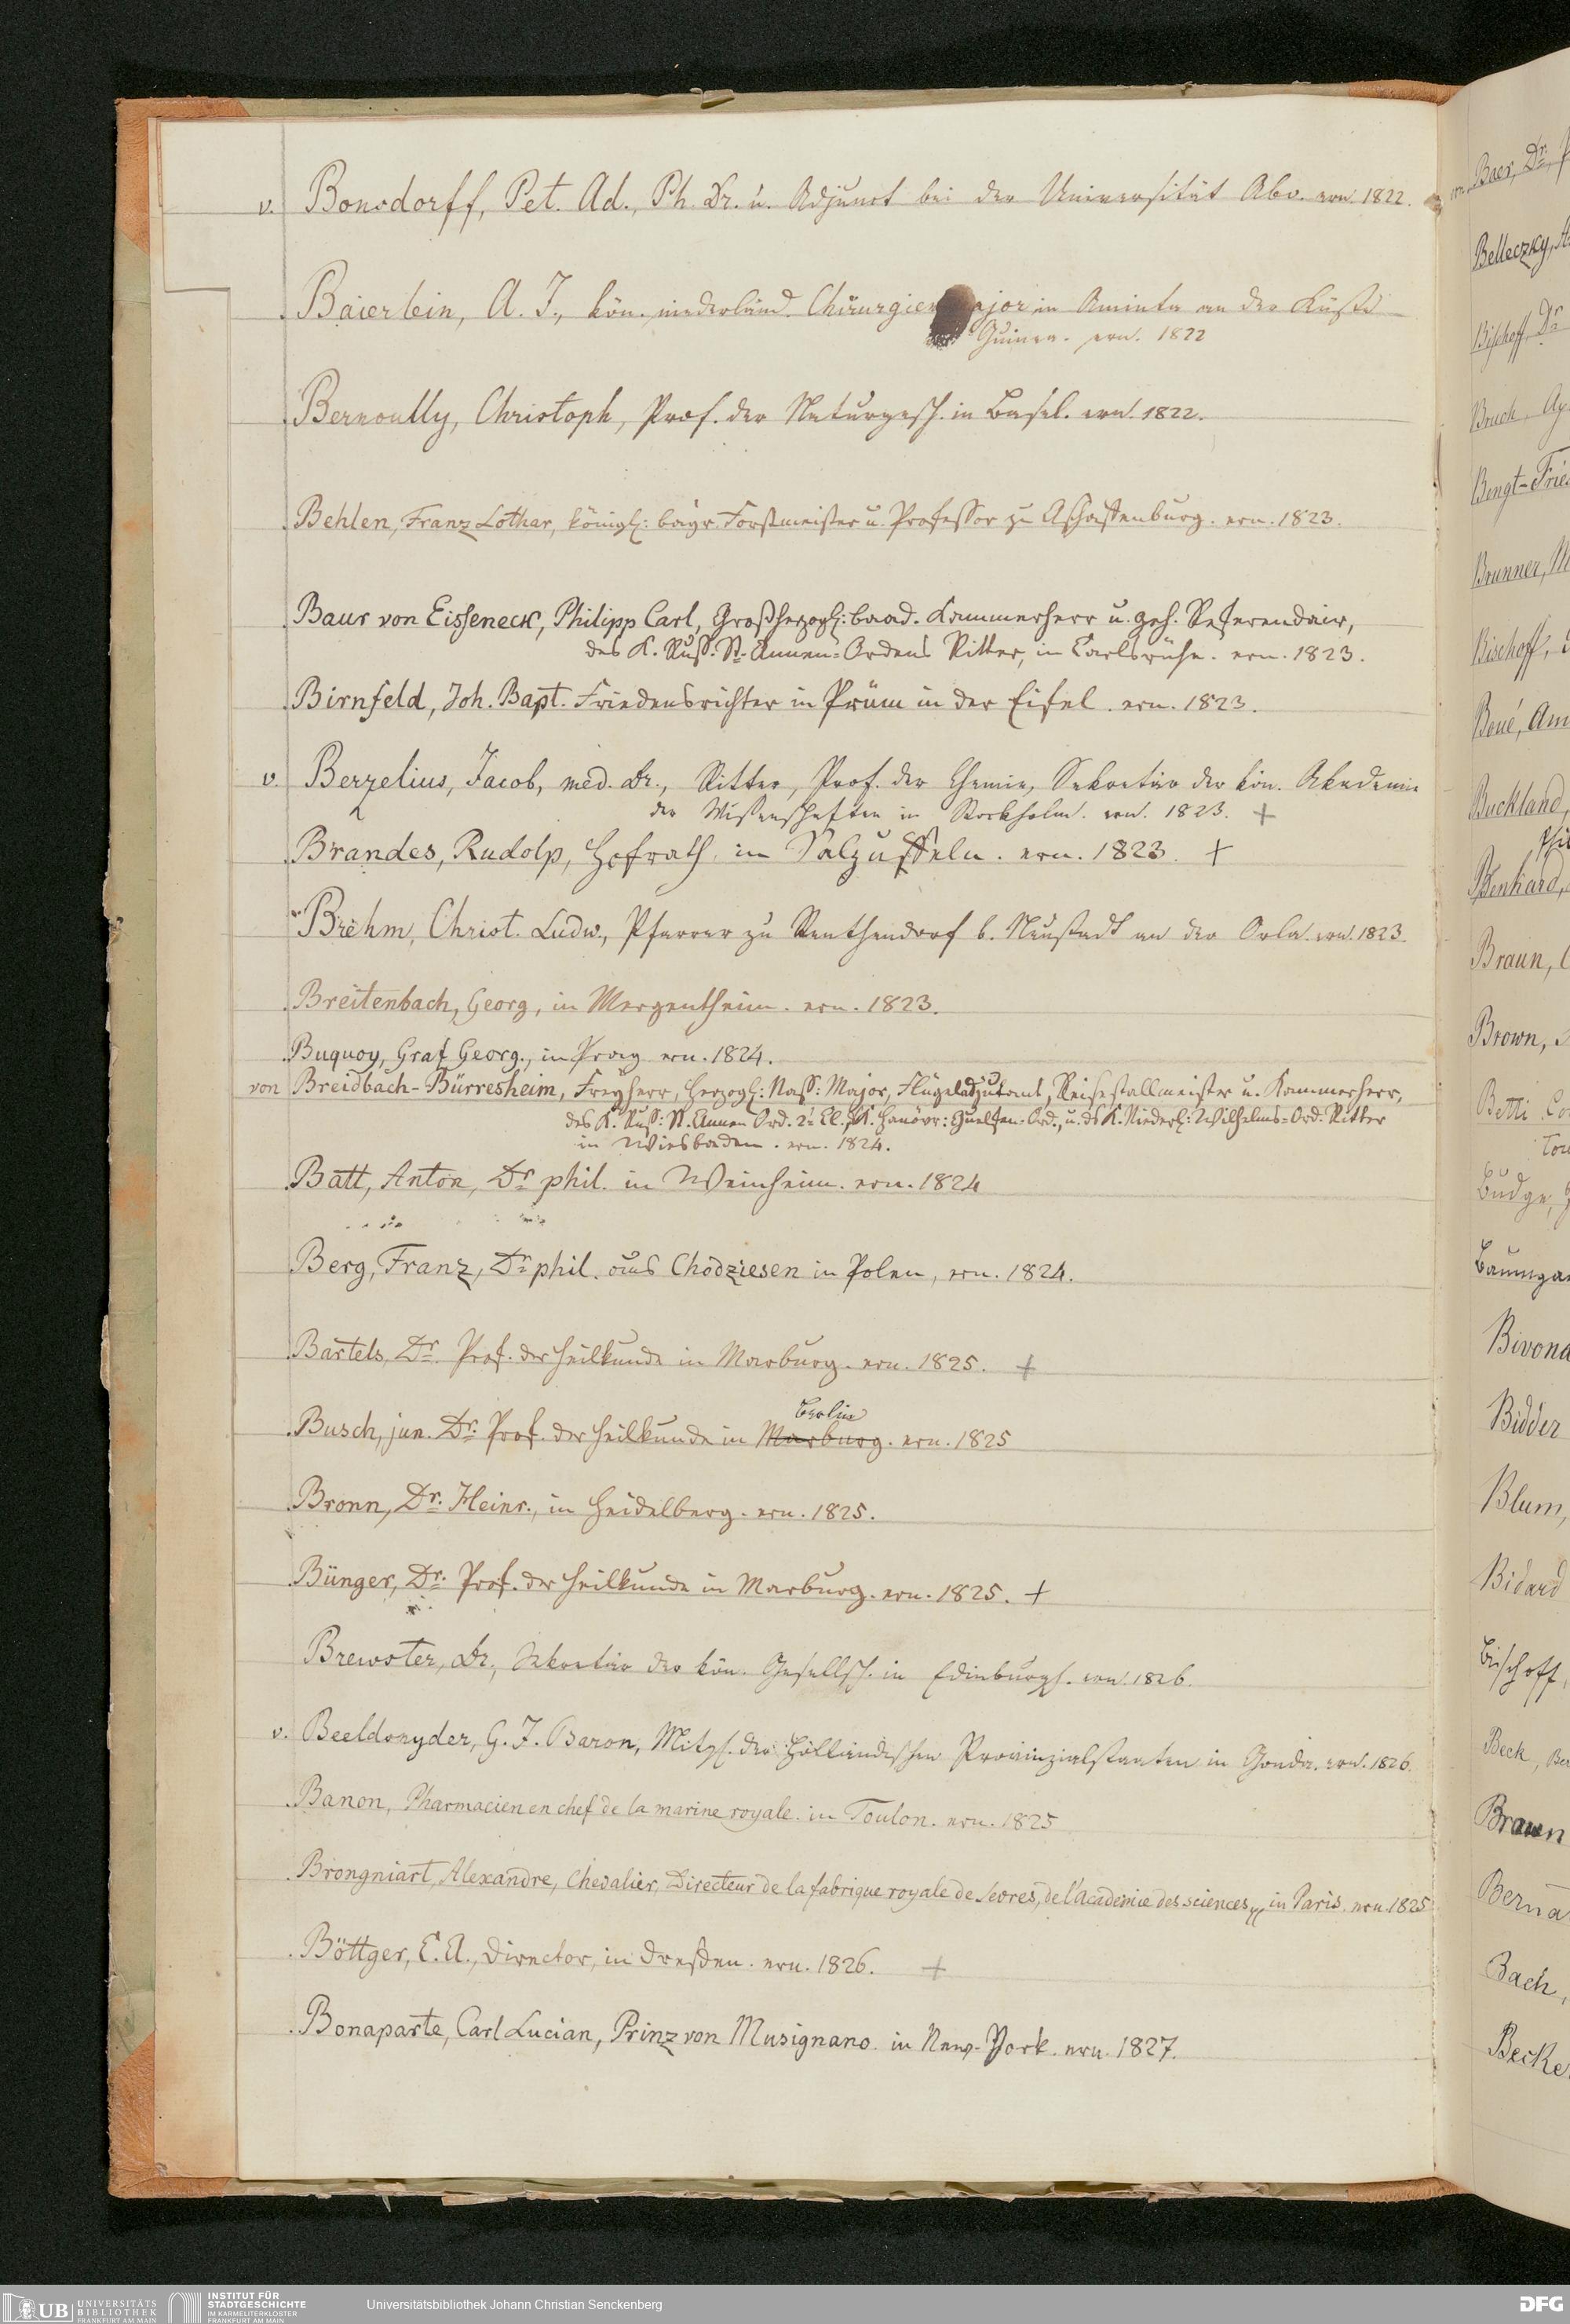 v. Bonsdorff, Pet. Ad., Ph. Dr. u. Adjunct bei der Universität Abo. ern. 1822.
Baierlein, A. J., kön. niederländ. Chirurgien major in Aminta an der Küste
Guinea. ern. 1822
Bernoully, Christoph, Prof. der Naturgesch. in Basel. ern. 1822.
Behlen, Franz Lothar, königl: bayr. Forstmeister u. Professor zu Aschaffenburg. ern. 1823.
Baur von Eisseneck, Philipp Carl, Großherzogl: baad. Kammerherr u. geh. Referendair,
des K. Russ: St. Annen-Ordens Ritter, in Carlsruhe. ern. 1823.
Birnfeld, Joh. Bapt. Friedensrichter in Prüm in der Eifel. ern. 1823.
v. Berzelius, Jacob, med. Dr., Ritter, Prof. der Chemie, Sekretär der kön. Akademie
der Wissenschaften in Stockholm. ern. 1823. +
Brandes, Rudolp, Hofrath in Salzuffeln. ern. 1823. +
Brehm, Christ. Ludw., Pfarrer zu Renthendorf b. Neustadt an der Orla. ern. 1823.
Breitenbach, Georg, in Mergentheim. ern. 1823.
Buquoy, Graf Georg., in Prag ern. 1824.
von Breidbach-Bürresheim, Freyherr, Herzogl: Nass: Major, Flügeladjutant, Reisestallmeister u. Kammerherr,
des K. Russ: St. Annen Ord. 2r Cl., K. Hanövr: Guelfen-Ord., u. ds K. Niederl: Wilhelms-Ord. Ritter
in Wiesbaden. ern. 1824.
Batt, Anton, Dr phil. in Weinheim. ern. 1824
Berg, Franz, Dr phil. aus Chodziesen in Polen, ern. 1824.
Bartels, Dr. Prof. der Heilkunde in Marburg. ern. 1825. +
Berlin
Busch, jun. Dr. Prof. der Heilkunde in Marburg. ern. 1825
Bronn, Dr. Heinr., in Heidelberg. ern. 1825.
Bünger, Dr. Prof. der Heilkunde in Marburg. ern. 1825. +
Brewster, Dr., Sekretär der kön. Gesellsch. in Edinburgh. ern. 1826.
v. Beeldsnyder, G. J. Baron, Mitgl. der Holländischen Provinzialstaaten in Gouda. ern. 1826.
Banon, Pharmacien en chef de la marine royale. in Toulon. ern. 1825
Brongniart, Alexandre, Chevalier, Directeur de la fabrique royale de Sevres, de l'Academie des sciences, in Paris. ern. 1825
Böttger, C. A., Director, in Dresden. ern. 1826. +
Bonaparte, Carl Lucian, Prinz von Musignano in New-York. ern. 1827.
Baer, Dr.
Belleczky,
Bischoff, Dr
Bruch,
Bengt-Frie
Brunner,
Bischoff,
Boué, Am
Buckland,
Braun,
Brown,
Betti
Budge,
Baumga
Bivona
Bidder
Blum,
Bidard
Bischoff,
Beck,
Braun
Berna
Bach,
Becke
UB UNIVERSITÄTS
BIBLIOTHEK
FRANKFURT AM MAIN
INSTITUT FÜR
STADTGESCHICHTE
IM KARMELITERKLOSTER
FRANKFURT AM MAIN
Universitätsbibliothek Johann Christian Senckenberg
DFG